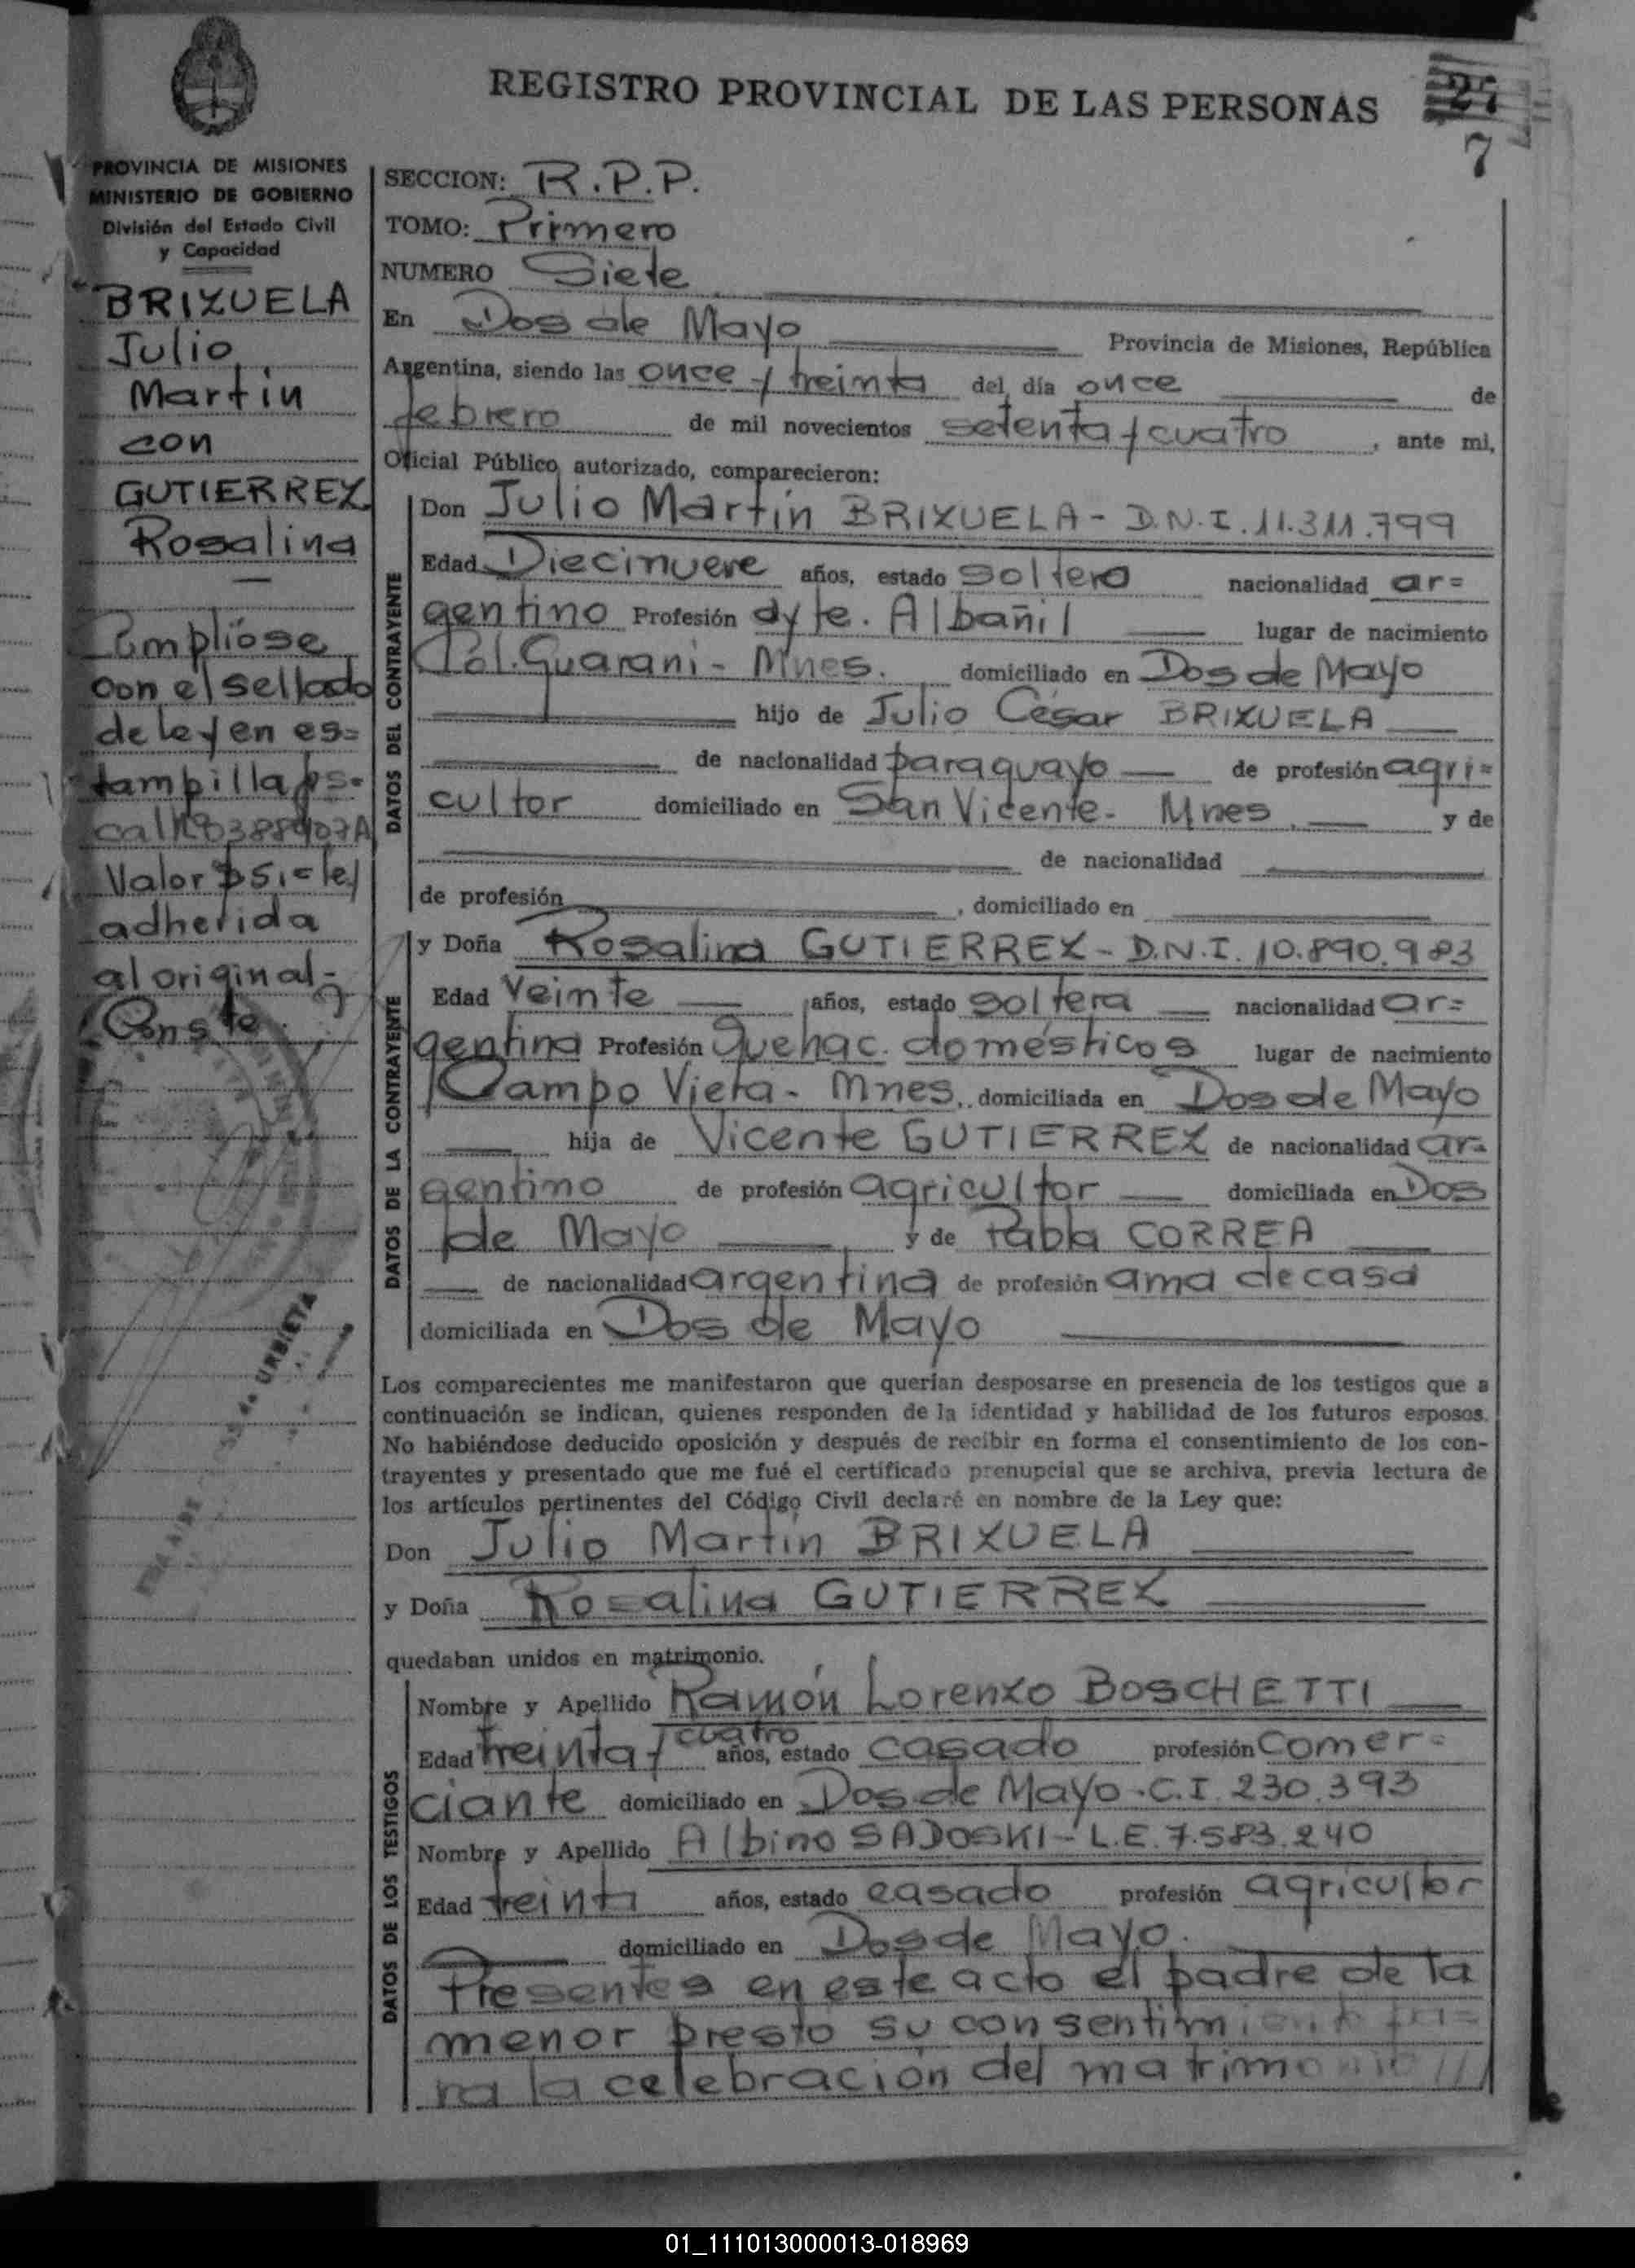 REGISTRO PROVINCIAL DE LAS PERSONAS
27
7
PROVINCIA DE MISIONES
MINISTERIO DE GOBIERNO
División del Estado Civil
y Capacidad
BRIZUELA
Julio
Martín
con
GUTIERREZ
Rosalina
Cumplióse
con el sellado
de ley en es=
tampilla fis-
cal Nº
Valor $
adherida
al original-
Conste.
URBIETA
SECCION: R.P.P.
TOMO: Primero
NUMERO Siete
En Dos de Mayo Provincia de Misiones, República
Argentina, siendo las once y treinta del día once de
febrero de mil novecientos setenta y cuatro, ante mi,
Oficial Público autorizado, comparecieron:
DATOS DEL CONTRAYENTE
Don Julio Martín BRIZUELA - D.N.I. 11.311.799
Edad Diecinueve años, estado soltero nacionalidad ar=
gentino Profesión dyte. Albañil lugar de nacimiento
Col. Guaraní - Mnes. domiciliado en Dos de Mayo
hijo de Julio César BRIZUELA
de nacionalidad paraguayo de profesión agri=
cultor domiciliado en San Vicente - Mnes. y de
de nacionalidad
de profesión , domiciliado en
DATOS DE LA CONTRAYENTE
y Doña Rosalina GUTIERREZ - D.N.I. 10.890.983
Edad Veinte años, estado soltera nacionalidad ar=
gentina Profesión Quehac. domésticos lugar de nacimiento
Campo Viera - Mnes. domiciliada en Dos de Mayo
hija de Vicente GUTIERREZ de nacionalidad ar=
gentino de profesión agricultor domiciliada en Dos
de Mayo y de Pabla CORREA
de nacionalidad argentina de profesión ama de casa
domiciliada en Dos de Mayo
Los comparecientes me manifestaron que querían desposarse en presencia de los testigos que a
continuación se indican, quienes responden de la identidad y habilidad de los futuros esposos.
No habiéndose deducido oposición y después de recibir en forma el consentimiento de los con-
trayentes y presentado que me fué el certificado prenupcial que se archiva, previa lectura de
los artículos pertinentes del Código Civil declaré en nombre de la Ley que:
Don Julio Martín BRIZUELA
y Doña Rosalina GUTIERREZ
quedaban unidos en matrimonio.
DATOS DE LOS TESTIGOS
Nombre y Apellido Ramón Lorenzo BOSCHETTI
Edad treinta y cuatro años, estado casado profesión Comer=
ciante domiciliado en Dos de Mayo - C.I. 230.393
Nombre y Apellido Albino SADOSKI - L.E. 7.583.240
Edad treinta años, estado casado profesión agricultor
domiciliado en Dos de Mayo.
Presentes en este acto el padre de la
menor presto su consentimiento pa=
ra la celebración del matrimonio///
01_111013000013-018969